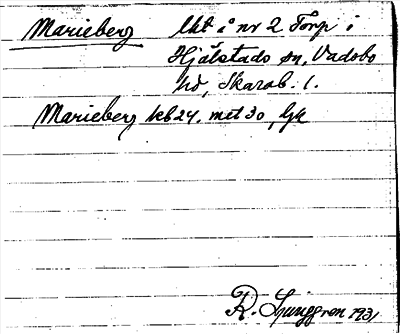 Marieberg lht å nr 2 Torp i
Hjälstads sn, Vadsbo
hd, Skarab. l.
Marieberg kb 24, met 30, ljk
R. Ljunggren 1931